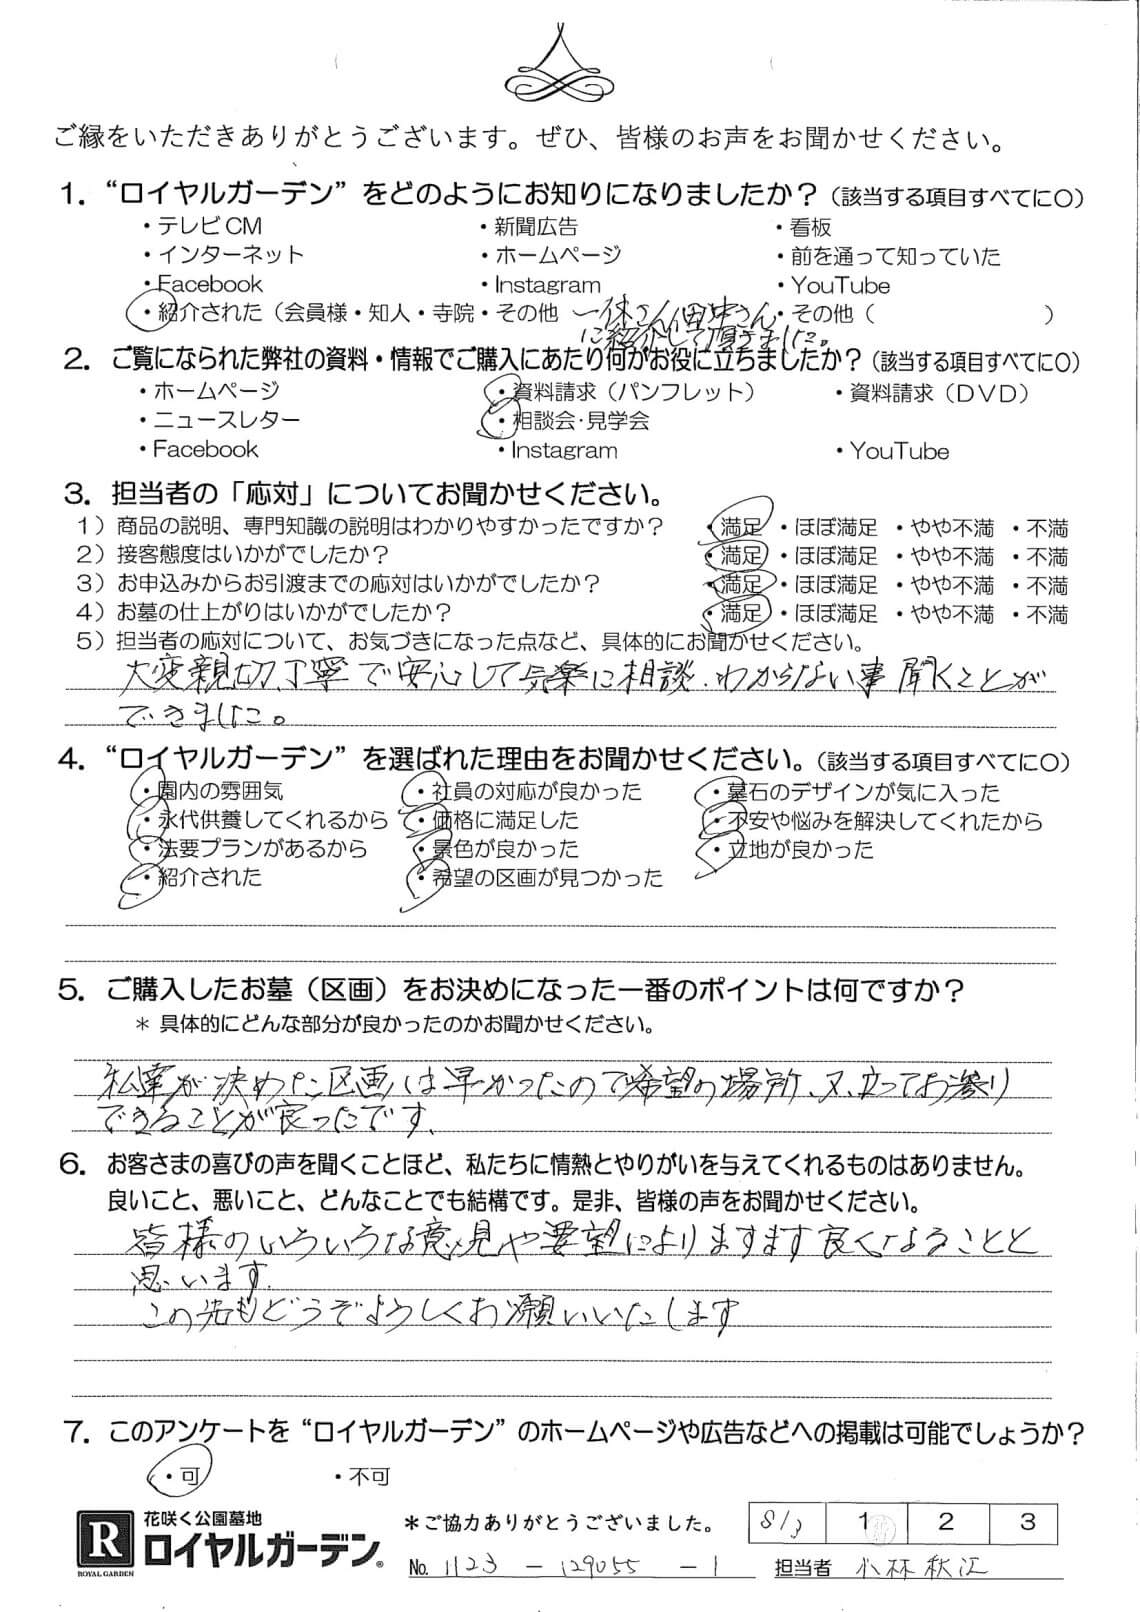 ご縁をいただきありがとうございます。ぜひ、皆様のお声をお聞かせください。
1. “ロイヤルガーデン” をどのようにお知りになりましたか？（該当する項目すべてに〇）
・テレビCM ・新聞広告 ・看板
・インターネット ・ホームページ ・前を通って知っていた
・Facebook ・Instagram ・YouTube
・紹介された（会員様・知人・寺院・その他 一休さん(田中さん ・その他（ ）
に紹介して頂きました。
2. ご覧になられた弊社の資料・情報でご購入にあたり何がお役に立ちましたか？（該当する項目すべてに〇）
・ホームページ ・資料請求（パンフレット） ・資料請求（DVD）
・ニュースレター ・相談会・見学会
・Facebook ・Instagram ・YouTube
3. 担当者の「応対」についてお聞かせください。
1）商品の説明、専門知識の説明はわかりやすかったですか？ ・満足 ・ほぼ満足 ・やや不満 ・不満
2）接客態度はいかがでしたか？ ・満足 ・ほぼ満足 ・やや不満 ・不満
3）お申込みからお引渡までの応対はいかがでしたか？ ・満足 ・ほぼ満足 ・やや不満 ・不満
4）お墓の仕上がりはいかがでしたか？ ・満足 ・ほぼ満足 ・やや不満 ・不満
5）担当者の応対について、お気づきになった点など、具体的にお聞かせください。
大変親切、丁寧で安心して気楽に相談、わからない事聞くことが
できました。
4. “ロイヤルガーデン” を選ばれた理由をお聞かせください。（該当する項目すべてに〇）
・園内の雰囲気 ・社員の対応が良かった ・墓石のデザインが気に入った
・永代供養してくれるから ・価格に満足した ・不安や悩みを解決してくれたから
・法要プランがあるから ・景色が良かった ・立地が良かった
・紹介された ・希望の区画が見つかった
5. ご購入したお墓（区画）をお決めになった一番のポイントは何ですか？
＊ 具体的にどんな部分が良かったのかお聞かせください。
私達が決めた区画は早かったので希望の場所、又、立ってお参り
できることが良ったです、
6. お客さまの喜びの声を聞くことほど、私たちに情熱とやりがいを与えてくれるものはありません。
良いこと、悪いこと、どんなことでも結構です。是非、皆様の声をお聞かせください。
皆様のいろいろな意見や要望によりますます良くなることと
思います。
この先もどうぞよろしくお願いいたします
7. このアンケートを “ロイヤルガーデン” のホームページや広告などへの掲載は可能でしょうか？
・可 ・不可
R ROYAL GARDEN
花咲く公園墓地
ロイヤルガーデン®
＊ご協力ありがとうございました。 8/3 1 2 3
No. 1123 - 129055 - 1 担当者 小林秋江